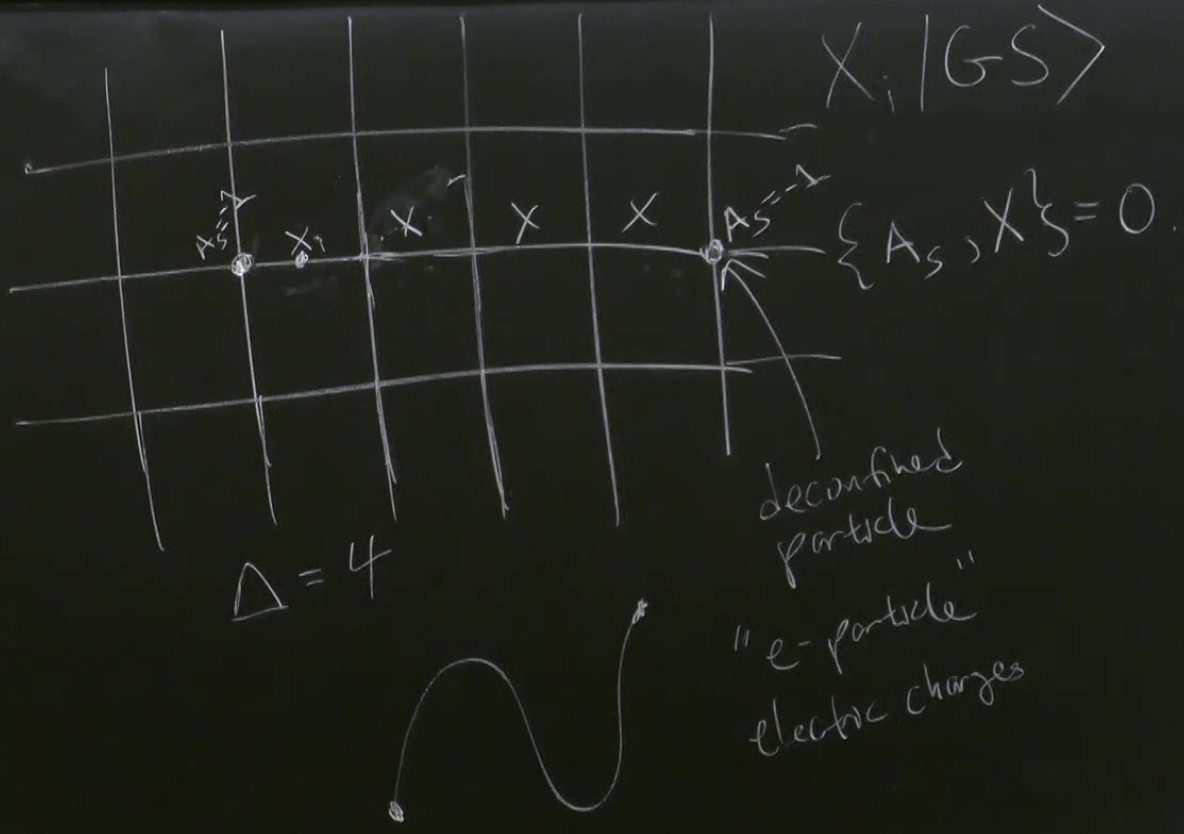 X_i |GS⟩
A_s = -1
X_i
X
X
X
A_s = -1
{A_s, X} = 0.
Δ = 4
deconfined
particle
"e-particle"
electric charges